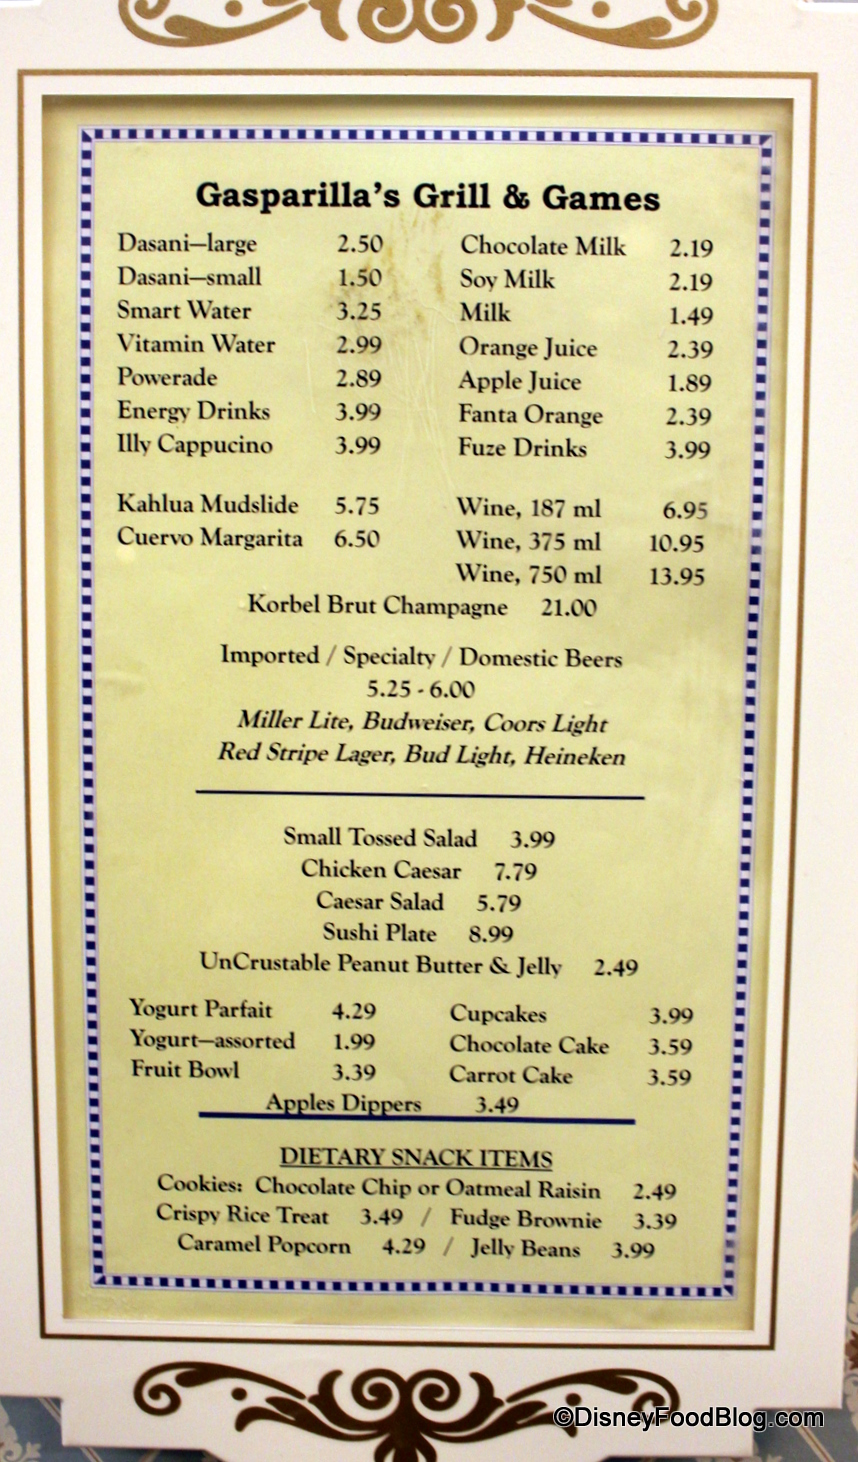 Gasparilla's Grill & Games
Dasani—large 2.50 Chocolate Milk 2.19
Dasani—small 1.50 Soy Milk 2.19
Smart Water 3.25 Milk 1.49
Vitamin Water 2.99 Orange Juice 2.39
Powerade 2.89 Apple Juice 1.89
Energy Drinks 3.99 Fanta Orange 2.39
Illy Cappucino 3.99 Fuze Drinks 3.99
Kahlua Mudslide 5.75 Wine, 187 ml 6.95
Cuervo Margarita 6.50 Wine, 375 ml 10.95
Wine, 750 ml 13.95
Korbel Brut Champagne 21.00
Imported / Specialty / Domestic Beers
5.25 - 6.00
Miller Lite, Budweiser, Coors Light
Red Stripe Lager, Bud Light, Heineken
Small Tossed Salad 3.99
Chicken Caesar 7.79
Caesar Salad 5.79
Sushi Plate 8.99
UnCrustable Peanut Butter & Jelly 2.49
Yogurt Parfait 4.29 Cupcakes 3.99
Yogurt—assorted 1.99 Chocolate Cake 3.59
Fruit Bowl 3.39 Carrot Cake 3.59
Apples Dippers 3.49
DIETARY SNACK ITEMS
Cookies: Chocolate Chip or Oatmeal Raisin 2.49
Crispy Rice Treat 3.49 / Fudge Brownie 3.39
Caramel Popcorn 4.29 / Jelly Beans 3.99
©DisneyFoodBlog.com